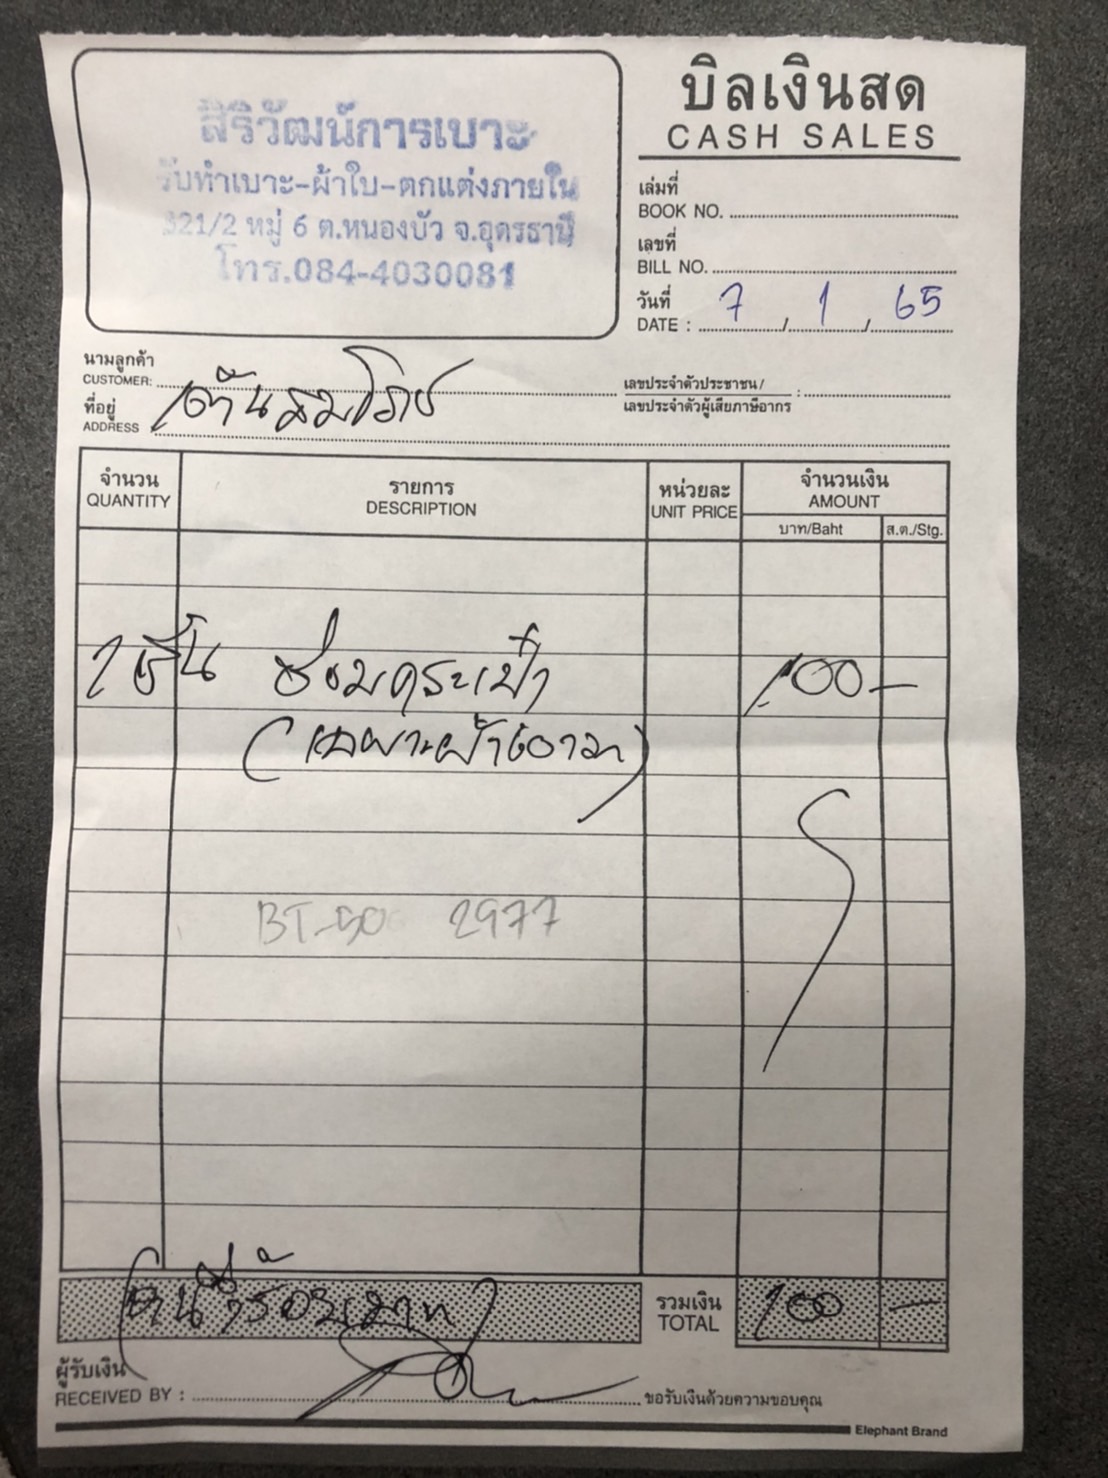 สิริวัฒน์การเบาะ
รับทำเบาะ-ผ้าใบ-ตกแต่งภายใน
321/2 หมู่ 6 ต.หนองบัว จ.อุดรธานี
โทร.084-4030081
บิลเงินสด
CASH SALES
เล่มที่
BOOK NO.
เลขที่
BILL NO.
วันที่
DATE : 7 / 1 / 65
นามลูกค้า
CUSTOMER:
ที่อยู่
ADDRESS
เลขประจำตัวประชาชน /
เลขประจำตัวผู้เสียภาษีอากร :
จำนวน
QUANTITY
รายการ
DESCRIPTION
หน่วยละ
UNIT PRICE
จำนวนเงิน
AMOUNT
บาท/Baht ส.ต./Stg.
1 ชิ้น ซ่อมกระเป๋า 100 –
2977
(หนึ่งร้อยบาท)
รวมเงิน
TOTAL 100 –
ผู้รับเงิน
RECEIVED BY :
ขอรับเงินด้วยความขอบคุณ
Elephant Brand